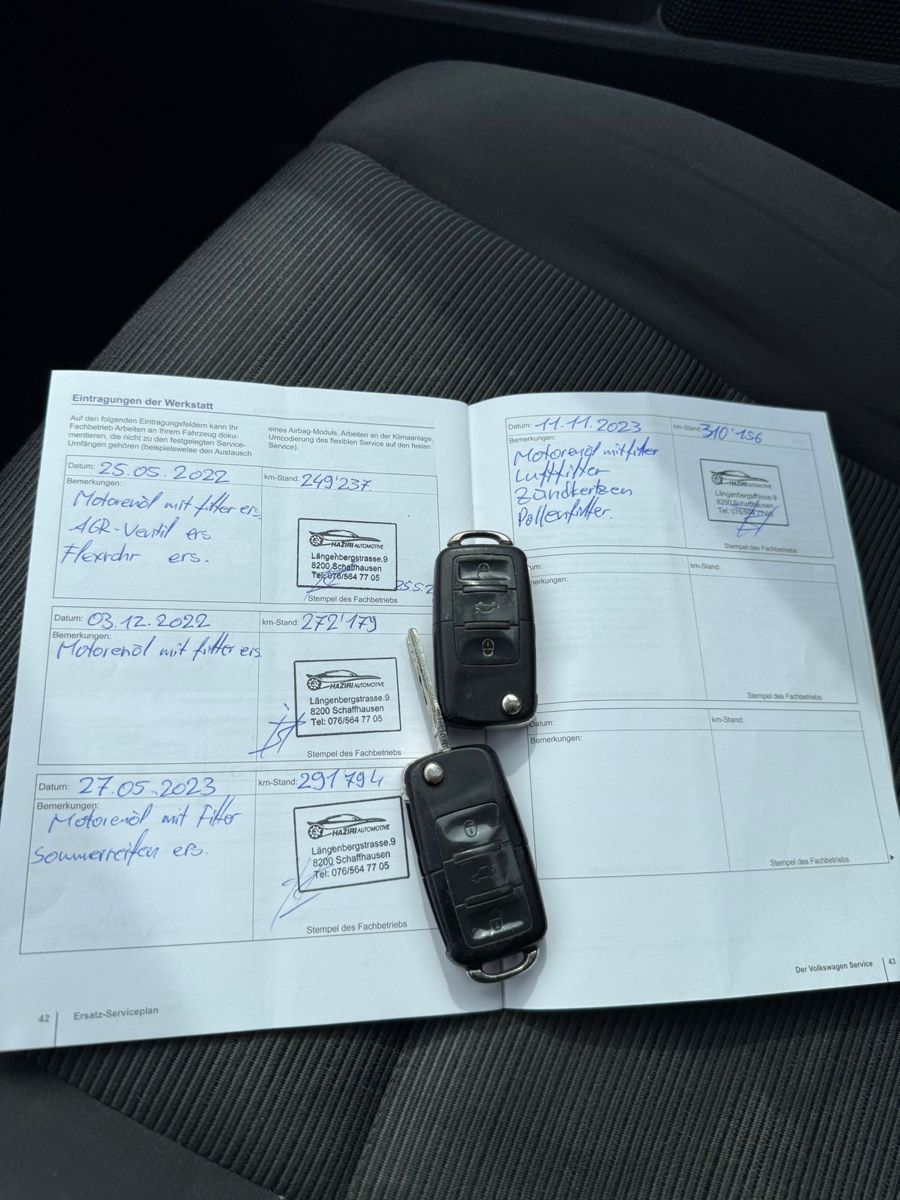 Eintragungen der Werkstatt
Auf den folgenden Eintragungsfeldern kann Ihr
Fachbetrieb Arbeiten an Ihrem Fahrzeug doku-
mentieren, die nicht zu den festgelegten Service-
Umfängen gehören (beispielsweise den Austausch
eines Airbag-Moduls, Arbeiten an der Klimaanlage,
Umcodierung des flexiblen Service auf den festen
Service).
Datum: 25.05.2022 km-Stand: 249'237
Bemerkungen:
Motorenöl mit filter ers.
AGR-Ventil ers
Flexrohr ers.
HAZIRI AUTOMOTIVE
Längenbergstrasse.9
8200 Schaffhausen
Tel: 076/564 77 05
25.5.2
Stempel des Fachbetriebs
Datum: 03.12.2022 km-Stand: 272'179
Bemerkungen:
Motorenöl mit filter ers.
HAZIRI AUTOMOTIVE
Längenbergstrasse.9
8200 Schaffhausen
Tel: 076/564 77 05
Stempel des Fachbetriebs
Datum: 27.05.2023 km-Stand: 291794
Bemerkungen:
Motorenöl mit Filter
Sommerreifen ers.
HAZIRI AUTOMOTIVE
Längenbergstrasse.9
8200 Schaffhausen
Tel: 076/564 77 05
Stempel des Fachbetriebs
42 Ersatz-Serviceplan
Datum: 11.11.2023 km-Stand: 310'156
Bemerkungen:
Motorenöl mit filter
Luftfilter
Zündkertzen
Pollenfilter.
HAZIRI AUTOMOTIVE
Längenbergstrasse.9
8200 Schaffhausen
Tel: 076/564 77 05
Stempel des Fachbetriebs
um: km-Stand:
merkungen:
Stempel des Fachbetriebs
Datum: km-Stand:
Bemerkungen:
Stempel des Fachbetriebs
Der Volkswagen Service 43